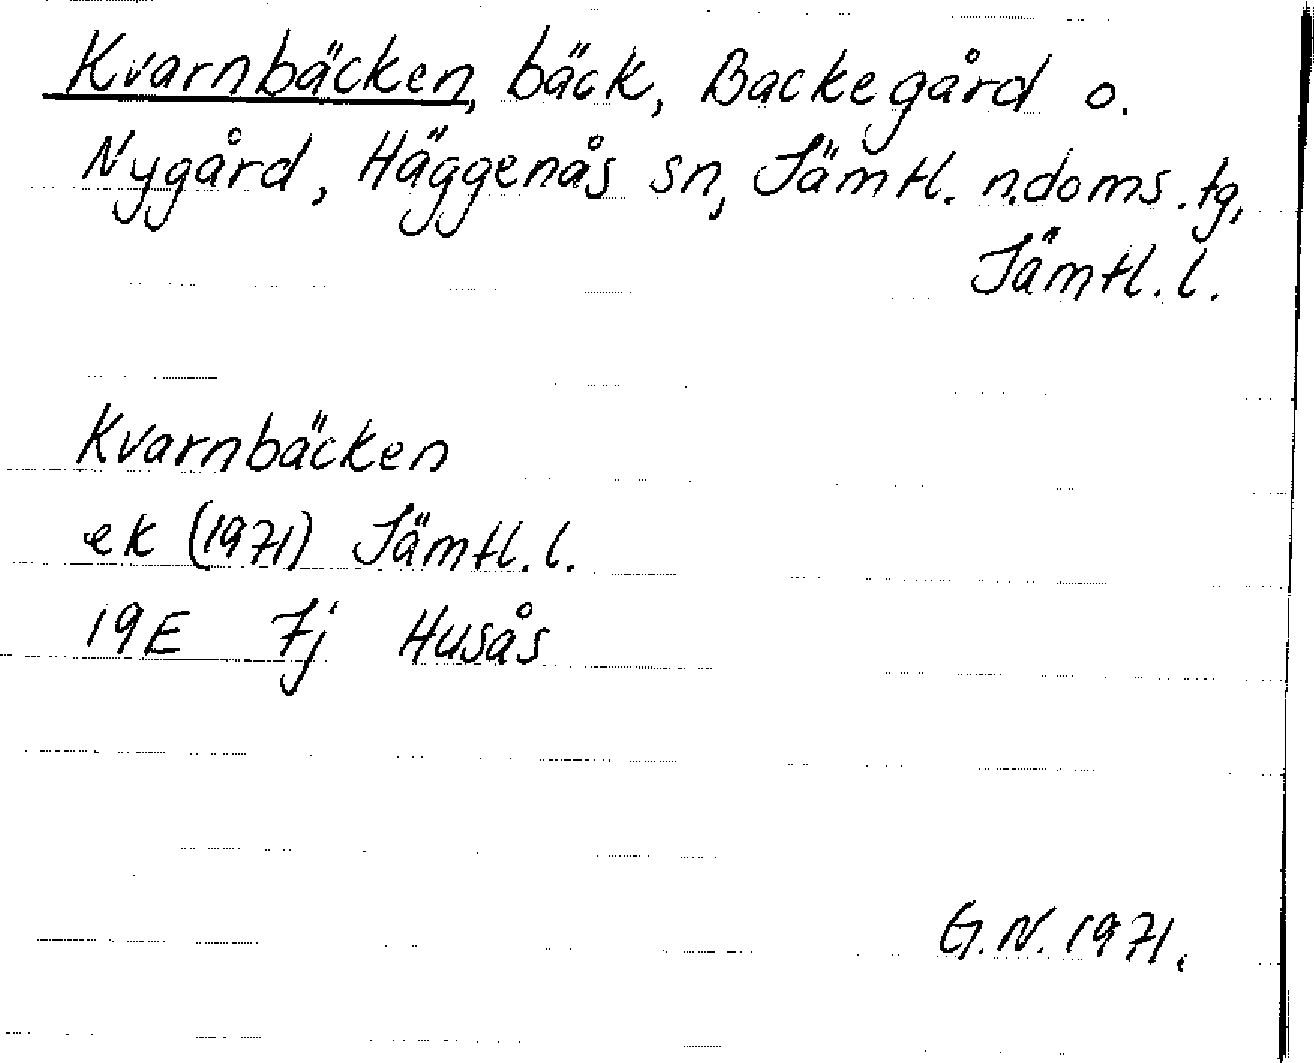 Kvarnbäcken, bäck, Backegård o.
Nygård, Häggenås sn, Jämtl. n.doms.tg,
Jämtl. l.
Kvarnbäcken
ek (1971) Jämtl. l.
19E 7j Husås
G.N. 1971.